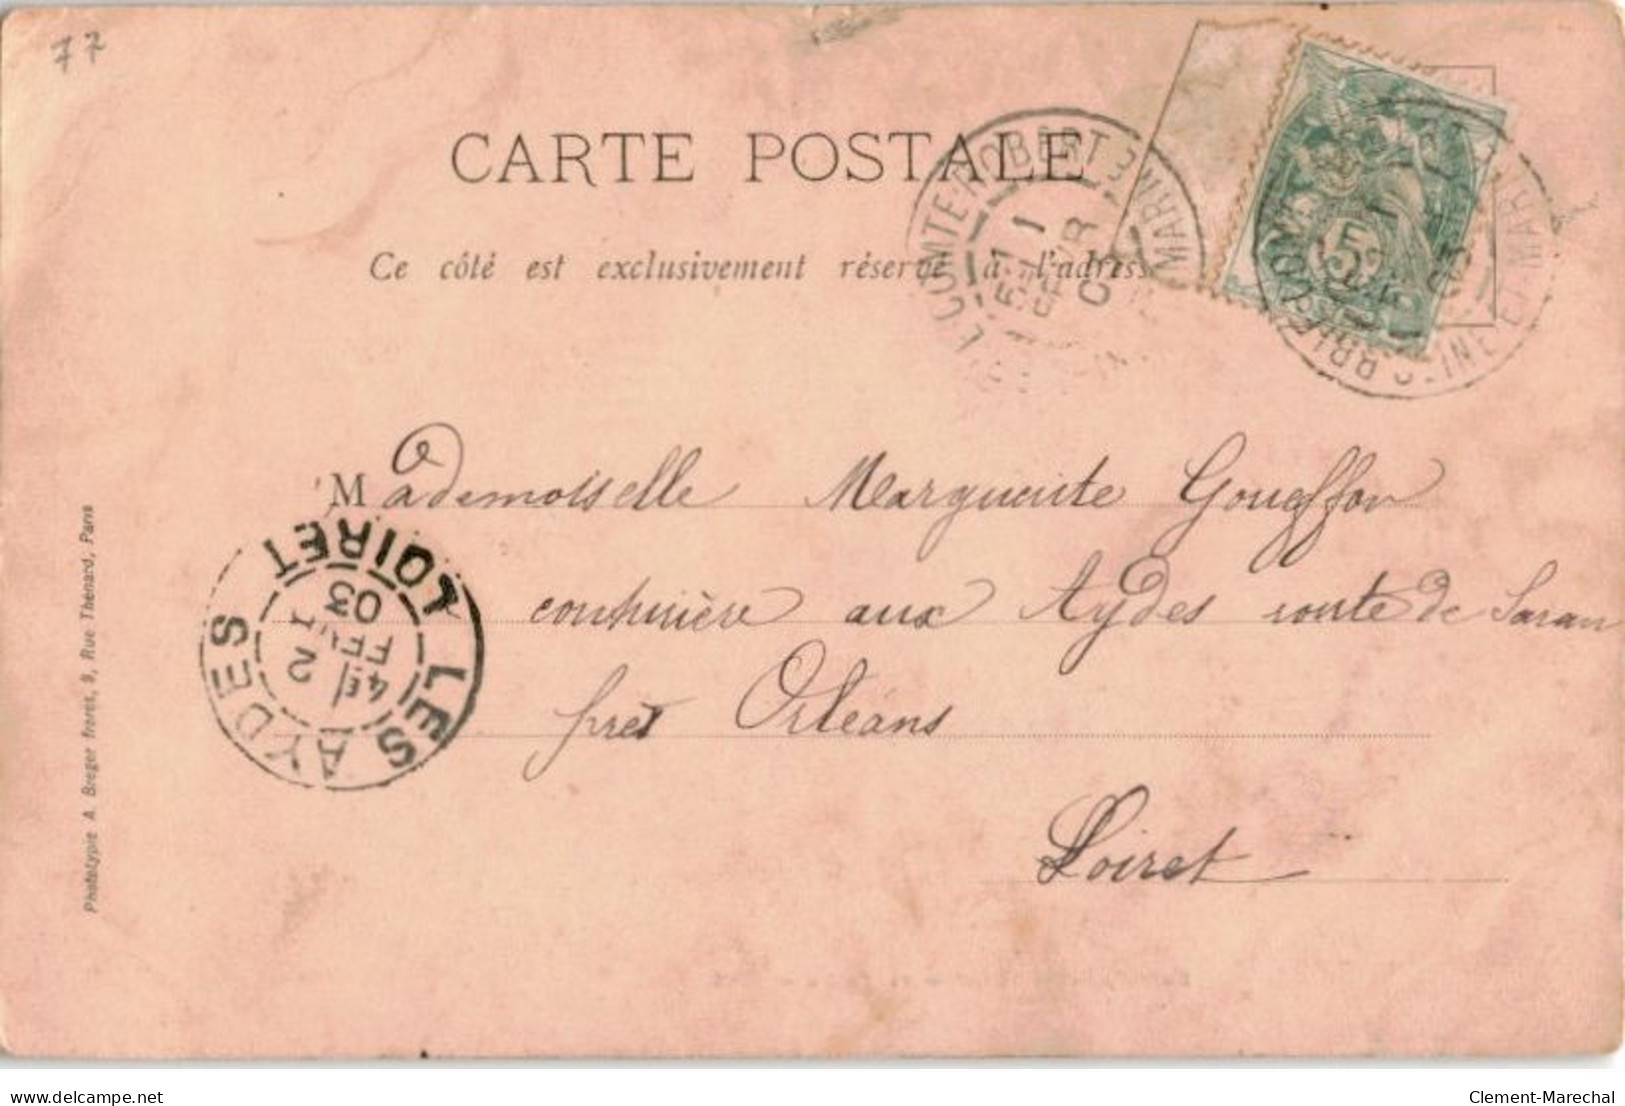 77
CARTE POSTALE
Ce côté est exclusivement réservé à l'adresse
Mademoiselle Marguerite Goueffon
couturière aux Aydes route de Saran
près Orléans
Loiret
LES AYDES LOIRET
4E
2
FEVR
03
COMTE-ROBERT
5E
1
FEVR
03
BRIE
SEINE ET MARNE
5
Phototypie A. Breger frères, 9, Rue Thénard, Paris
www.delcampe.net
Clement-Marechal